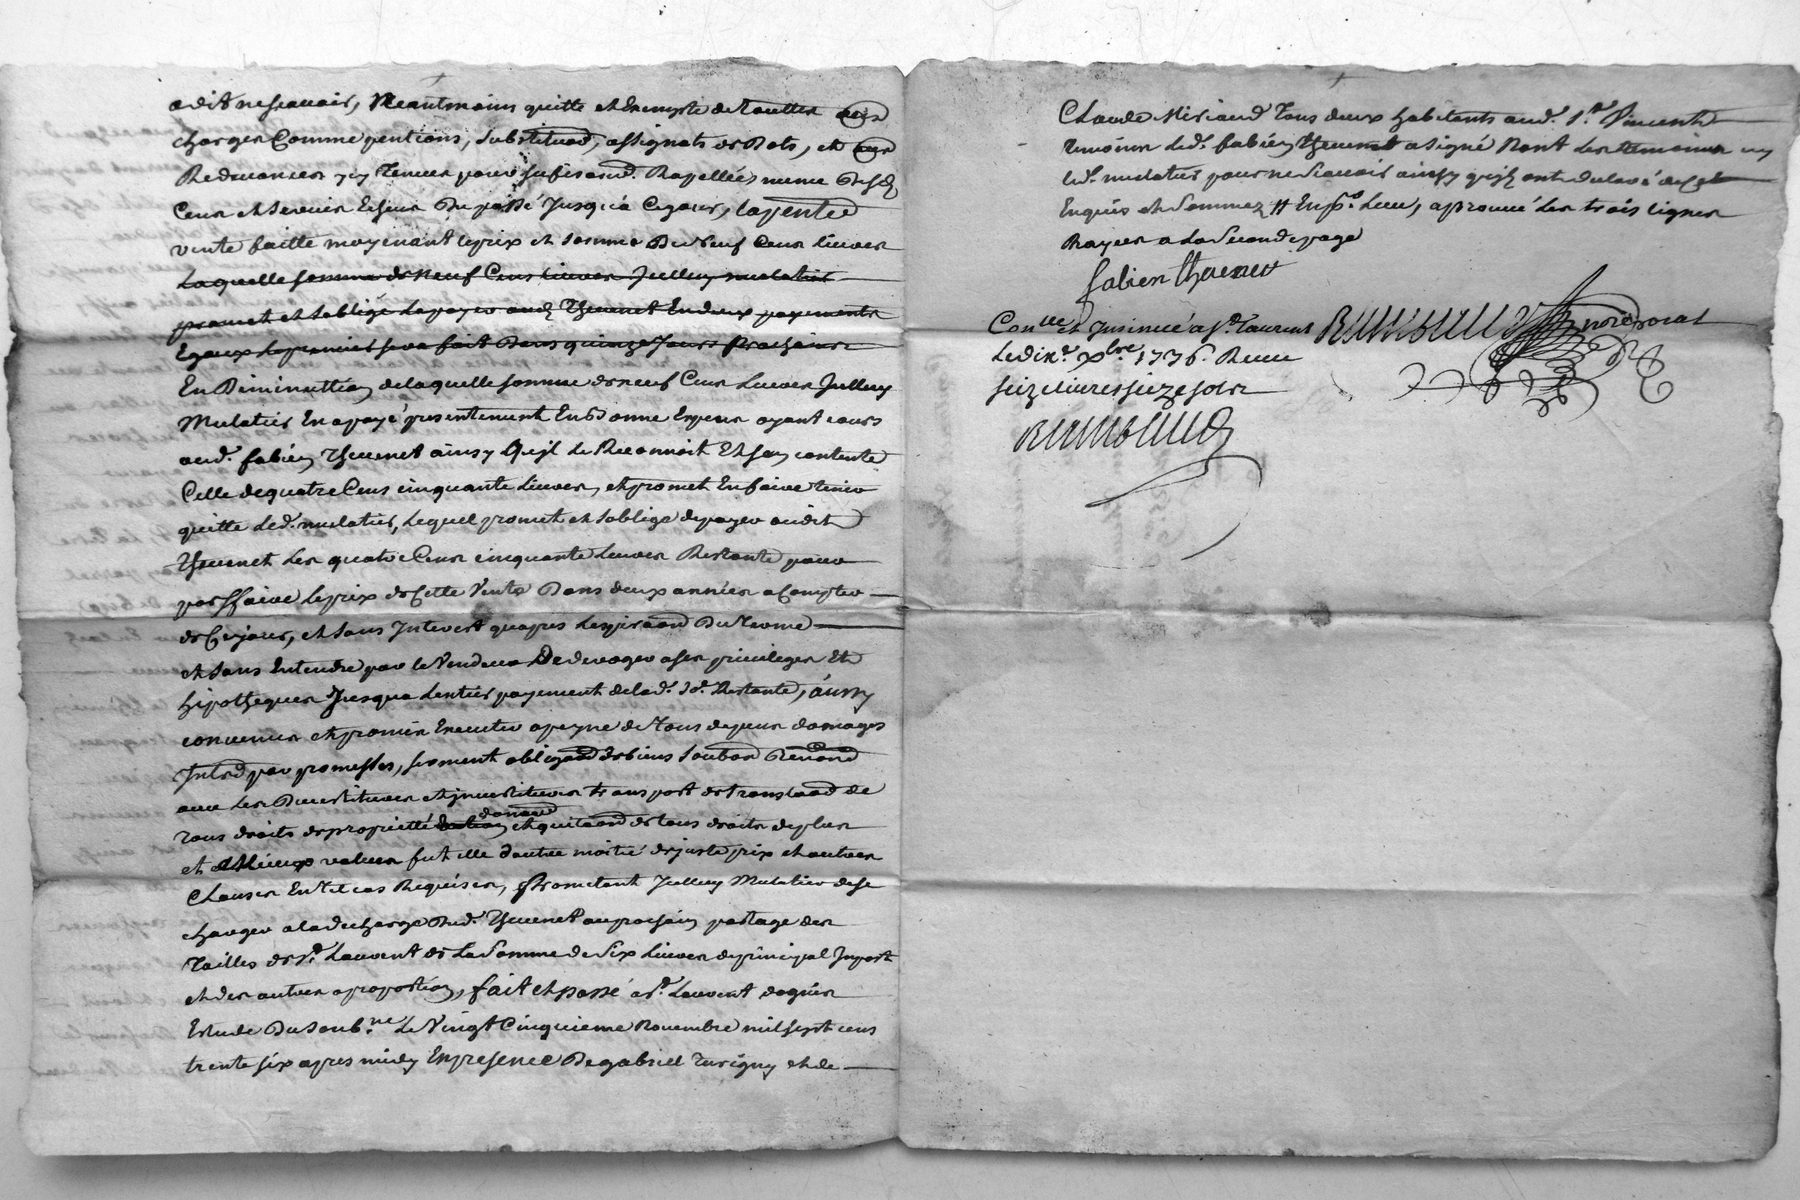 a dit ne scavoir, Neantmoins quitte et Exempte de touttes
charges Comme pentions, substituaõn, assignats de Dots, et
Redevances
Cens et servien Echeus Du passé Jusqu'a Ce jour, la pente
vente faitte moyenant le prix et somme De Neuf Cens Livres
Laquelle somme de neuf Cens Livres Jullien mulatier
promet et soblige de payer aud. Thevenet En deux payements
Egeaux Le premier sera fait Dans quinze Jours prochains
En Diminution de laquelle somme de neuf Cens Livres Jullien
Mulatier En a payé presentement En bonne Espece ayant cours
aud. fabien Thevenet ainsy Qu'il Le Reconnoit Et sen contente
Celle de quatre Cens cinquante Livres, et promet En faire tenir
quitte Led. mulatier, Lequel promet et soblige de payer audit
Thevenet Les quatre Cens cinquante Livres Restante pour
parffaire Le prix de Cette Vente Dans deux années a Compter
de Ce jour, et sans Interest qu'apres L'expiraõn Du terme
et sans Entendre par le Vendeur De deroger a ses privileges Et
hipotheques Jusqua Lentier payement de lad. sᵉ. Restante, ainsy
convenus et promis Executer a peyne de tous depens domages
Intrᵈ par promesses, serment obligaõn de biens soubᵒⁿ Renonᵒⁿ
avec Les Devestitures et investitures transport et translaõn de
tous droits de proprietté donaõn et quitaõn de tous droits de plus
et Mieux values fut elle d'outre moitié de juste prix et autres
Clauses En tel cas Requises, Prometant Jullien Mulatier de se
charger a la decharge Dud. Thevenet au prochain partage des
Tailles de Sᵗ. Laurent de La Somme de Six Livres de principal Import
et des autres a proportion, fait et passé a Sᵗ. Laurent dagnis
Estude Du soubⁿᵉ Le Vingt Cinquieme Novembre mil sept cens
trente six apres midy En presence De gabriel Turigny et de
Claude Miriaud Tous deux habitants aud. Sᵗ. Vincent
temoins Led. fabien Thevenet a signé Non Les temoins ny
Led. mulatier pour ne scavoir ainsy qu'ils ont declaré de ce
Enquis et Sommez # En pⁿᵗ. Lieu, aprouvé Les trois lignes
Rayees a La Seconde page
fabien thevenet
Conˡˡᵉ et Insinué a Sᵗ Laurent
Le dixᵉ xbre 1736. Receu
seize livres seize sols